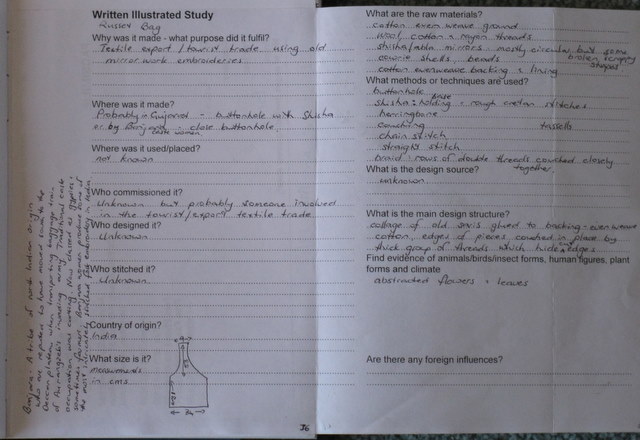 Written Illustrated Study
Russet Bag
Why was it made - what purpose did it fulfil?
Textile export / tourist trade using old
mirror work embroideries
Where was it made?
Probably - Gujarat - buttonhole with Shisha
or by Banjara - close buttonhole
caste women
Where was it used/placed?
not known
Who commissioned it?
Unknown but probably someone involved
in the tourist/export textile trade
Who designed it?
Unknown
Who stitched it?
Unknown
Country of origin?
India
What size is it?
measurements
in cms
36
Banjara - A tribe of north Indian origin
who are reputed to have moved south to the
Deccan plateau when transporting baggage train
of Aurangzeb's invading army. Traditional caste
occupation was carting. Now classed as gypsies,
sometimes farmers. Banjara women produce some of
the most intricately stitched flat embroidery in India
What are the raw materials?
cotton even weave ground
wool, cotton & rayon threads
shisha/abla mirrors - mostly circular but some
broken scrappy
shapes
cowrie shells, beads
cotton evenweave backing & lining
What methods or techniques are used?
buttonhole
shisha: holding base - rough cretan stitches
herringbone
couching tassells
chain stitch
straight stitch
braid - rows of double threads couched closely
together
What is the design source?
unknown
What is the main design structure?
collage of old saris glued to backing - even weave
cotton, edges of pieces couched in place by
thick group of threads which hide cut edges
Find evidence of animals/birds/insect forms, human figures, plant
forms and climate
abstracted flowers & leaves
Are there any foreign influences?